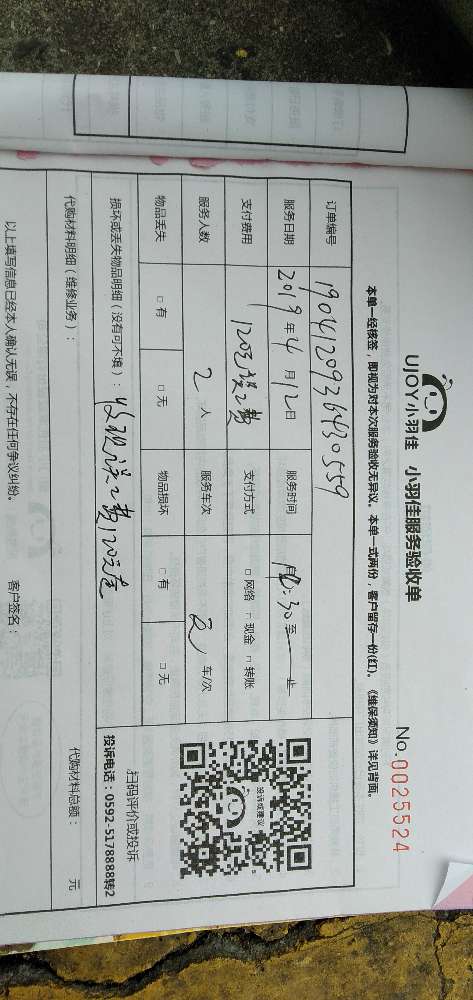 UJOY小羽佳 小羽佳服务验收单
No.0025524
本单一经核签，即视为对本次服务验收无异议。本单一式两份，客户留存一份(红)。《维保须知》详见背面。
订单编号 1904120936430559
服务日期 2019年4月12日 服务时间 :30至 止
支付费用 120元误工费 支付方式 □网络 □现金 □转账
服务人数 2人 服务车次 车/次
物品丢失 □有 □无 物品损坏 □有 □无
损坏或丢失物品明细（没有可不填）： 误工费120元
投诉或建议
扫码评价或投诉
投诉电话：0592-5178888转2
代购材料明细（维修业务）： 代购材料总额： 元
以上填写信息已经本人确认无误，不存在任何争议纠纷。 客户签名：